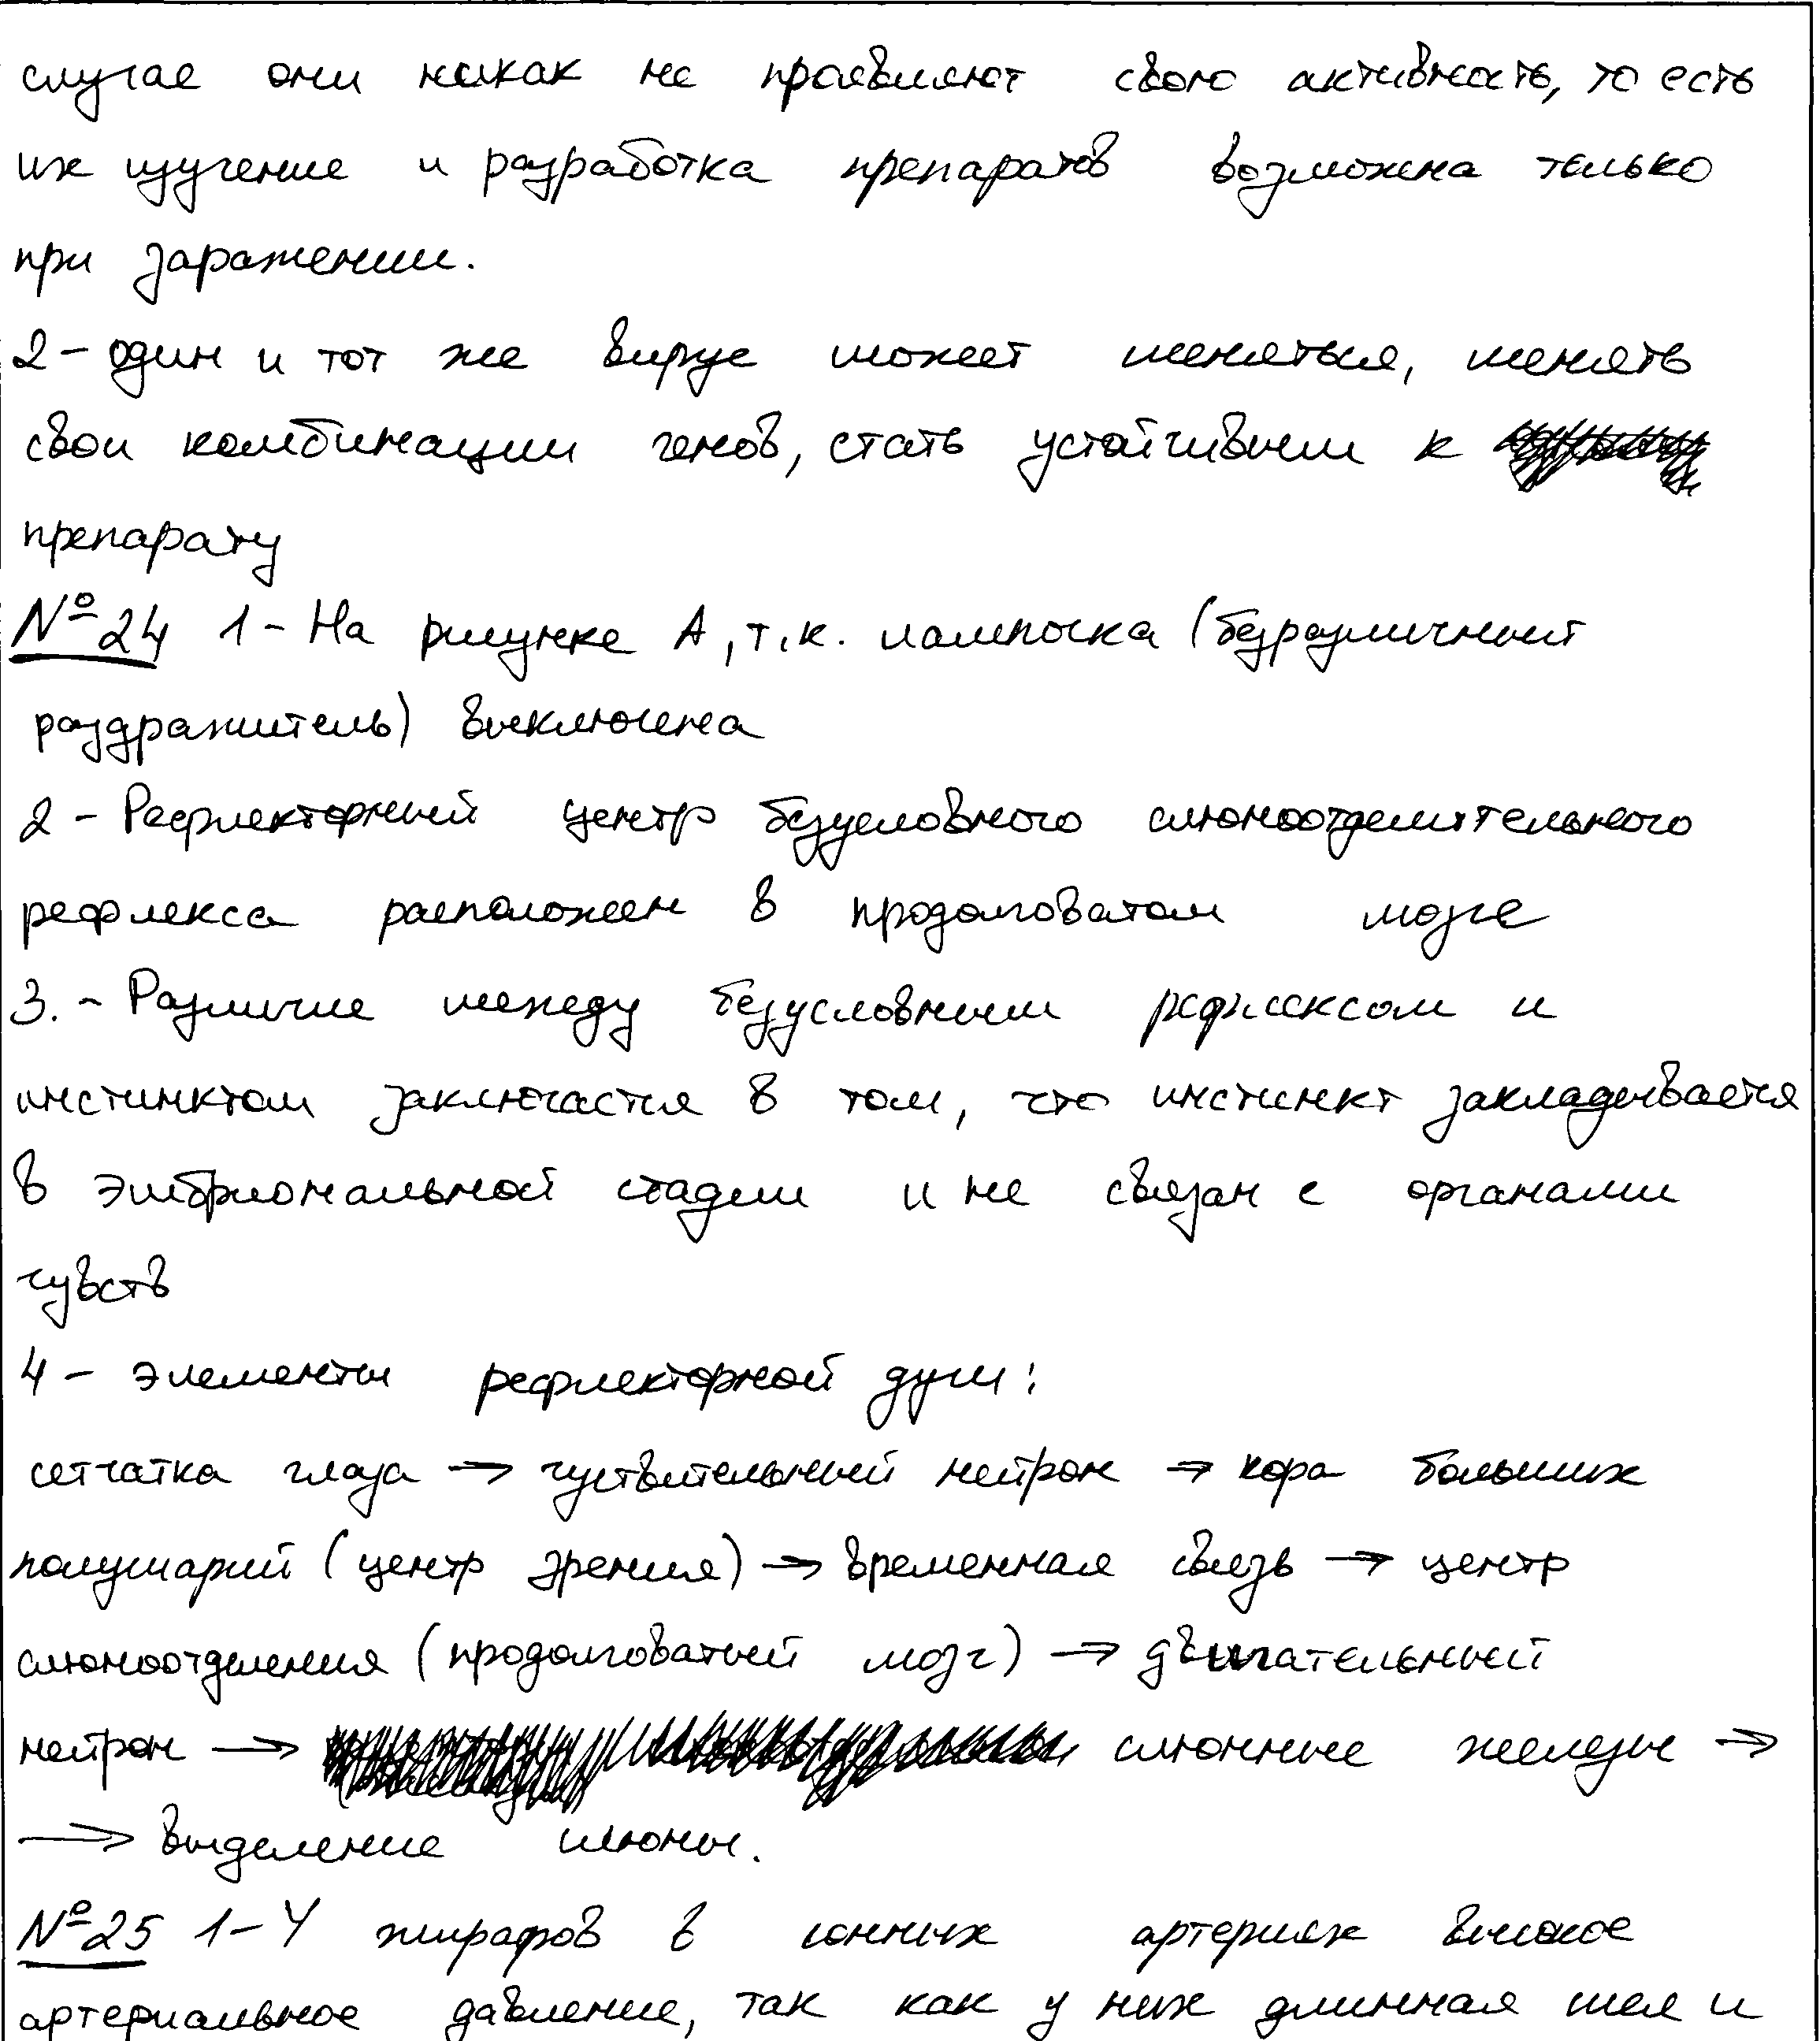 случае они никак не проявляют свою активность, то есть
их изучение и разработка препаратов возможна только
при заражении.
2 - один и тот же вирус может меняться, менять
свои комбинации генов, стать устойчивым к
препарату
№24 1 - На рисунке А, т.к. лампочка (безразличный
раздражитель) выключена
2 - Рефлекторный центр безусловного слюноотделительного
рефлекса расположен в продолговатом мозге
3. - Различие между безусловным рефлексом и
инстинктом заключается в том, что инстинкт закладывается
в эмбриональной стадии и не связан с органами
чувств
4 - элементы рефлекторной дуги:
сетчатка глаза → чуствительный нейрон → кора больших
полушарий (центр зрения) → временная связь → центр
слюноотделения (продолговатый мозг) → двигательный
нейрон → слюнные железы →
→ выделение слюны.
№25 1 - У жирафов в сонных артериях высокое
артериальное давление, так как у них длинная шея и